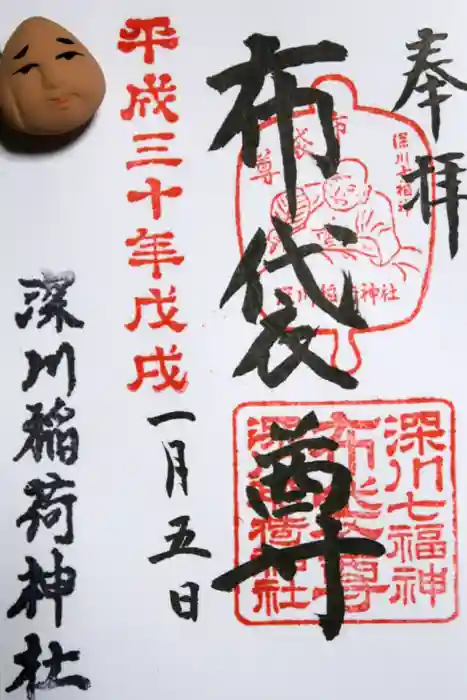 奉拝
布袋尊
布袋尊
深川七福神
深川稲荷神社
深川七福神
布袋尊
深川稲荷神社
平成三十年戊戌
一月五日
深川稲荷神社